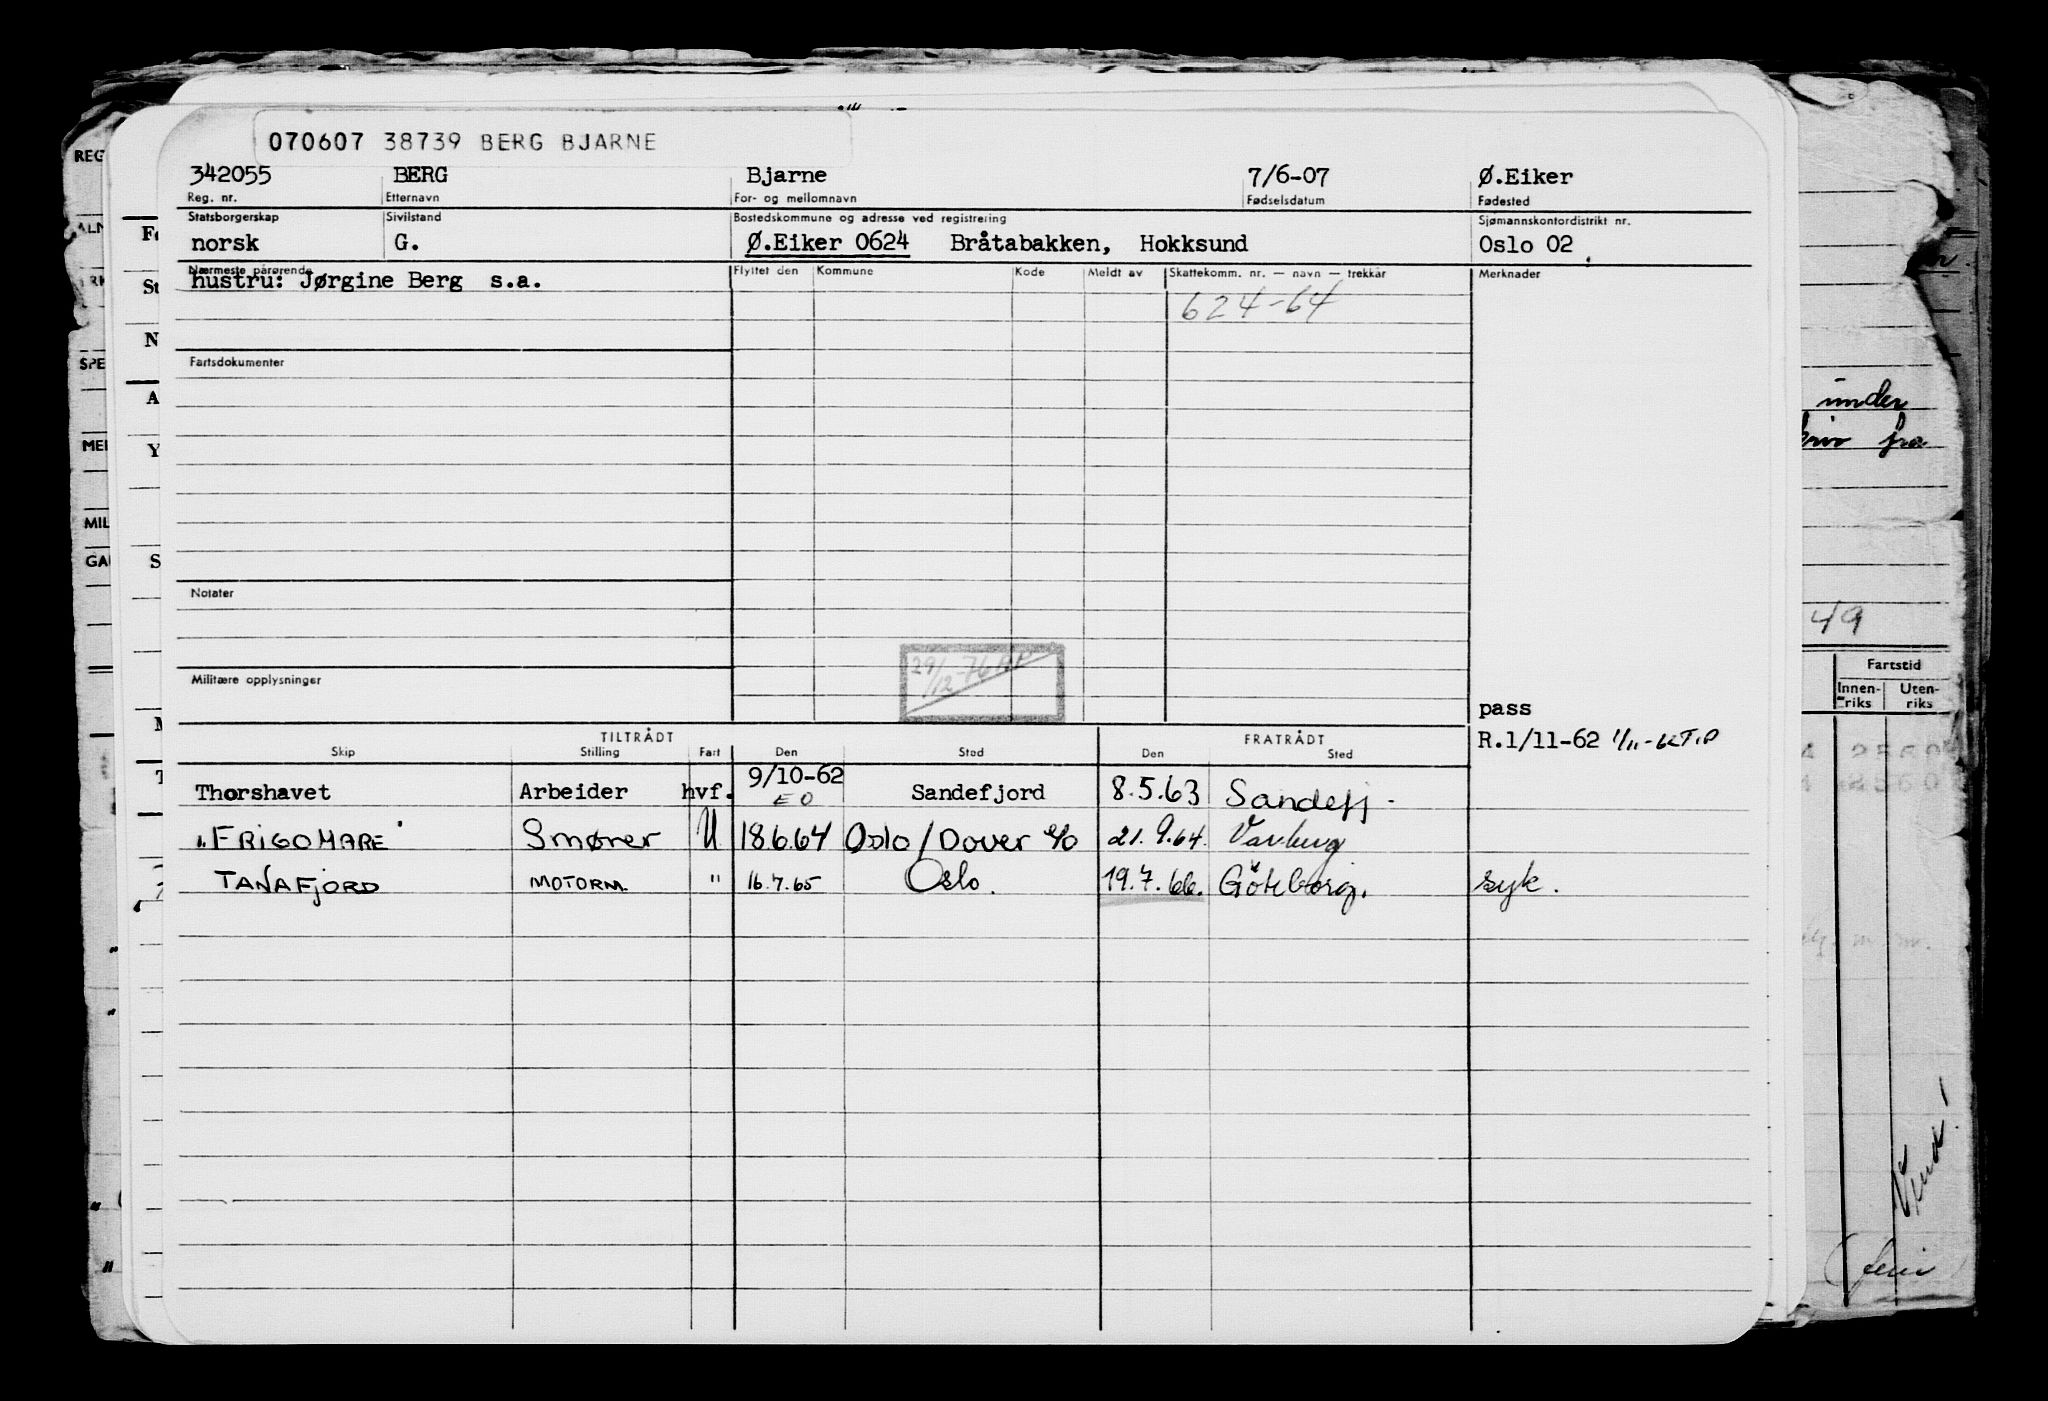 070607 38739 BERG BJARNE
342055 BERG Bjarne 7/6-07 Ø.Eiker
Reg. nr. Etternavn For- og mellomnavn Fødselsdatum Fødested
Statsborgerskap Sivilstand Bostedskommune og adresse ved registrering Sjømannskontordistrikt nr.
norsk G. Ø.Eiker 0624 Bråtabakken, Hokksund Oslo 02
Nærmeste pårørende Flyttet den Kommune Kode Meldt av Skattekomm. nr. — navn — trekkår Merknader
hustru: Jørgine Berg s.a.
624-64
Fartsdokumenter
Notater
29/12-76
Militære opplysninger
pass
TILTRÅDT FRATRÅDT R.1/11-62
Skip Stilling Fart Den Sted Den Sted
9/10-62
Thorshavet Arbeider hvf. EO Sandefjord 8.5.63 Sandefj.
"FRIGOMARE" Smører U 18.6.64 Oslo/Dover e/o 21.9.64. Varberg
TANAFJORD MOTORM. " 16.7.65 Oslo. 19.7.66. Göteborg. syk.
REG
ALN
SPE
MIL
GA
under
fra
49
Fartstid
Innenriks Utenriks